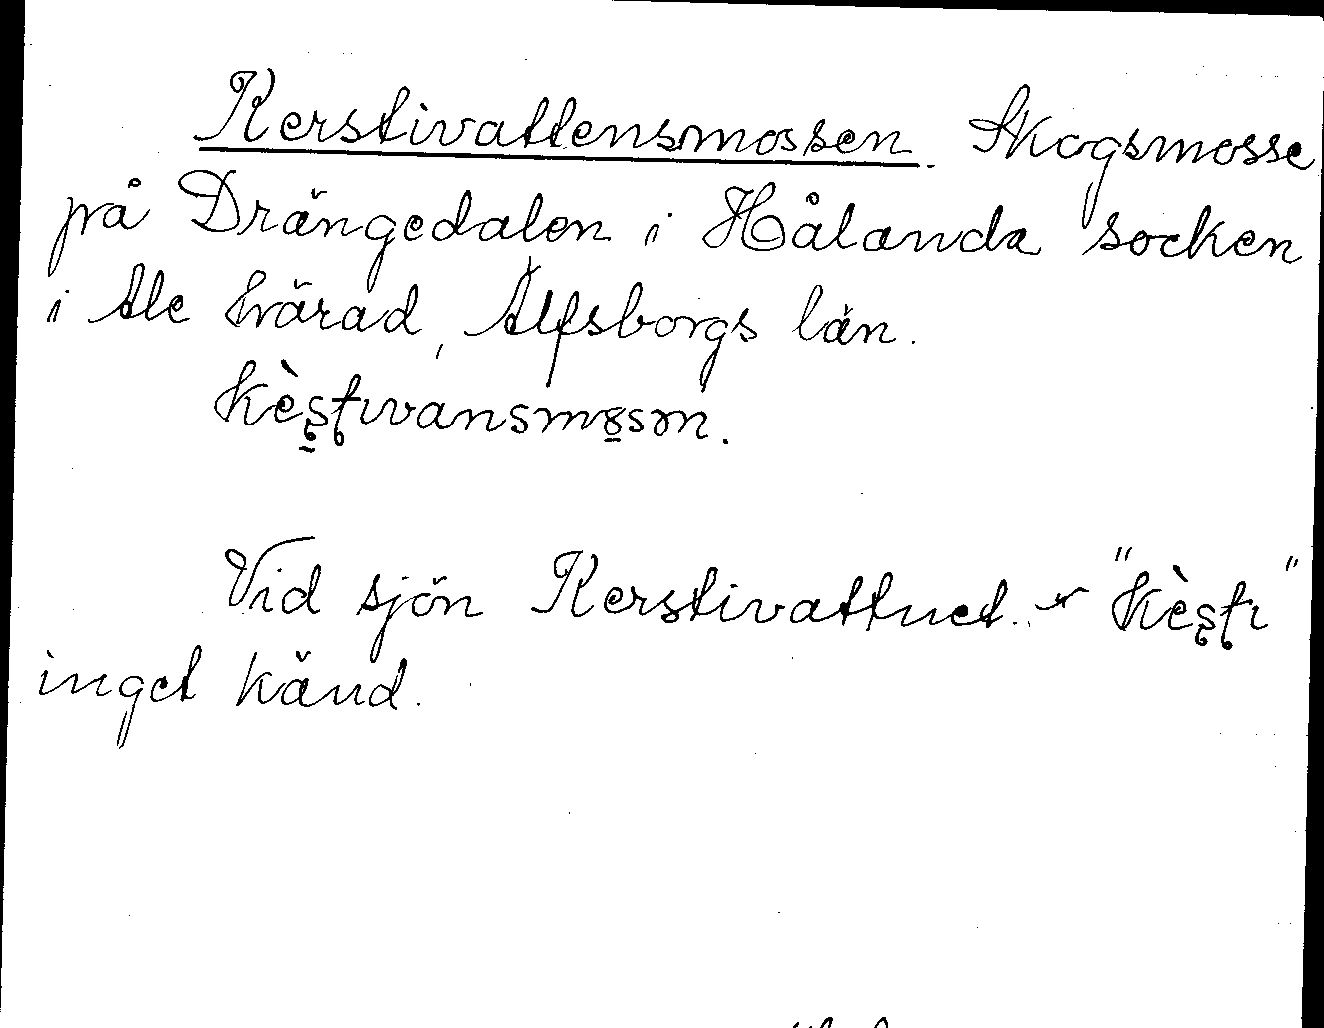 Kerstivattensmossen. Skogsmosse
på Drängedalen i Hålanda socken
i Ale härad, Älfsborgs län.
kèștıvansmosən.
Vid sjön Kerstivattnet. "kèștı"
inget känd.